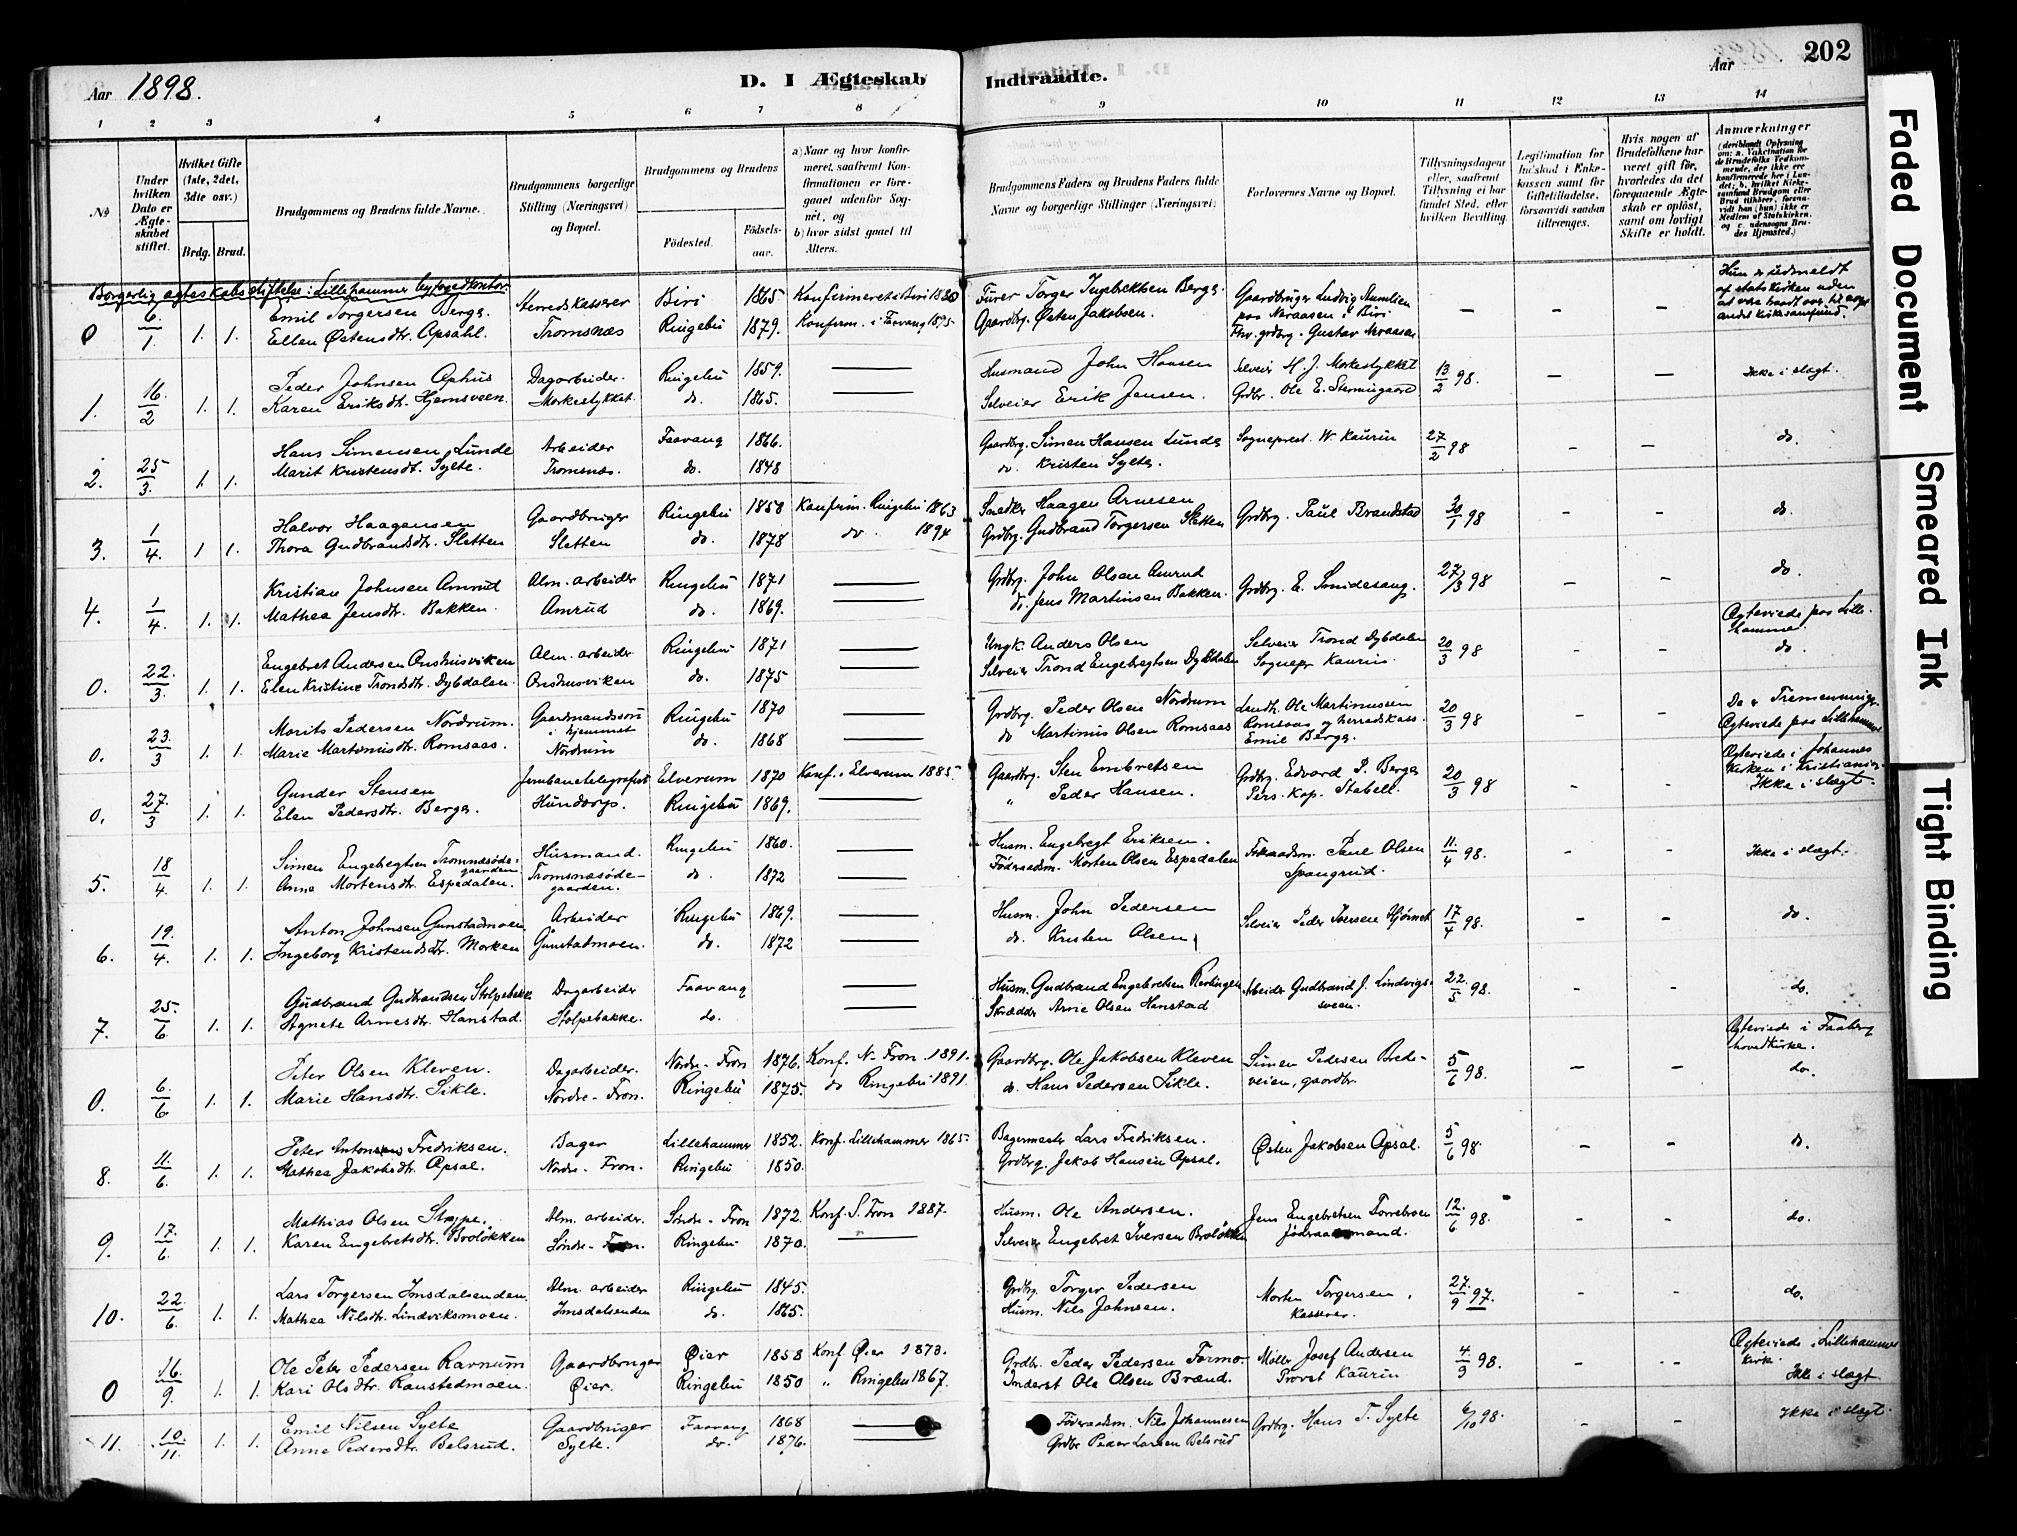 Aar 1898.
D. I Ægteskab Indtraadte.
Aar
202
1 2 3 4 5 6 7 8 9 10 11 12 13 14
No
Under hvilken Dato er Ægteskabet stiftet.
Hvilket Gifte (1ste, 2det, 3dte osv.)
Brdg. Brud.
Brudgommens og Brudens fulde Navne.
Brudgommens borgerlige Stilling (Næringsvei) og Bopæl.
Brudgommens og Brudens
Födested. Födsels-aar.
a) Naar og hvor konfirmeret, saafremt Konfirmationen er foregaaet udenfor Sognet, og
b) hvor sidst gaaet til Alters.
Brudgommens Faders og Brudens Faders fulde Navne og borgerlige Stillinger (Næringsvei)
Forlovernes Navne og Bopæl.
Tillysningsdagene eller, saafremt Tillysning ei har fundet Sted, efter hvilken Bevilling.
Legitimation for Indskud i Enkekassen samt for Giftetilladelse, forsaavidt saadan tiltrænges.
Hvis nogen af Brudefolkene har været gift för, hvorledes da det foregaaende Ægteskab er oplöst, samt om lovligt Skifte er holdt.
Anmærkninger
Borgerlig egteskabsstiftelse i Lillehammer byfogedkontor.
0 6/1 1. 1. Emil Torgersen Berge. Herredskasserer Biri 1865 Konfirmeret i Biri 1880 Furer Torger Ingebrektsen Berge. Gaardbruger Ludvig Stumlien paa Neraasen i Biri — — — Hun er udmeldt af statskirken uden
Ellen Østensdtr. Opsahl. Tromsnæs Ringebu 1879. Konfirm. i Faavang 1895. Gaardbrg. Østen Jakobsen. Fhv. grdbrg. Gustav Neraasen
1. 16/2 1. 1. Peder Johnsen Ophus Dagarbeider. Ringebu 1859. — Husmand John Hansen Selveier H. J. Morkestykket 13/2 98. — — Ikke i slegt.
Karen Eriksdtr. Hjemsveen. Morkestykket do. 1865. Selveier Erik Jensen. Grdbr. Ole E. Stenningaard
2. 25/3. 1. 1. Hans Simensen Lunde Arbeider Faavang 1866. Gaardbrg. Simen Hansen Lunde Sogneprest W. Kaurin 27/2 98 — — do.
Marit Kristensdt. Sylte. Tromsnæs. do. 1848 do. Kristen Sylte.
3. 1/4. 1 1. Halvor Haagensen Gaardbruger Ringebu 1858 Konfirm. Ringebu 1863 Smed Haagen Arnesen Grdbrg. Paul Brandstad 30/1 98 - - do.
Thora Gudbrandsdtr. Sletten Sletten do. 1878 do. 1894 Grdbrg. Gudbrand Torgersen Sletten
4. 1/4. 1. 1. Kristian Johnsen Amrud Alm. arbeider Ringebu 1871 — Grdbrg. John Olsen Amrud Grdbrg. E. Smidesang. 27/3 98 - - do.
Mathea Jensdtr. Bakken. Amrud do. 1869. — do. Jens Martinsen Bakken.
0. 22./3. 1. 1. Engebret Andersen Onshusviken Alm. arbeider Ringebu 1871 — Ungk. Anders Olsen Selveier Trond Dybdalen 20/3 98 - - Egteviede paa Lillehammer. do.
Elen Kristine Trondsdtr. Dybdalen. Onshusviken do. 1875 — Selveier Trond Engebregtsen Dybdalen Sognepr. Kaurin.
0. 23./3 1. 1. Morits Pedersen Nordrum. Gaardmandssøn i hjemmet Ringebu 1870 — Grdbrg. Peder Olsen Nordrum Lendh. Ole Martinussen 20/3 98 - - De er Tremenninge. Egteviede paa Lillehammer
Marie Martinusdtr. Romsaas. Nordrum do. 1868 — do Martinus Olsen Romsaas Romsaas og herredskass. Emil Berge.
0. 27./3 1. 1. Gunder Stensen Jernbanetelegrafist Elverum 1870 Konf. i Elverum 1885. Gaardbrg. Sten Embretsen Grdbrg. Edvard P. Berge 20/3 98 - - Egteviede i Johannes Kirken i Kristiania. Ikke i slægt.
Elen Pedersdtr. Berge. Hundorp. Ringebu 1869. — " Peder Hansen. Pers. Kap. Stabell.
5. 18/4. 1. 1. Simen Engebregtsen Tromsnæsødegaarden Husmand. Ringebu 1860. — Husm. Engebregt Eriksen. Føderaadsm. Paul Olsen 11./4 98. - - Ikke i slegt.
Anne Mortensdtr. Espedalen. Tromsnæsødegaarden. do. 1872 — Føderaadsm. Morten Olsen Espedalen Spangrud.
6. 19./4. 1. 1. Anton Johnsen Gunstadmoen Arbeider Ringebu 1869. — Husm. John Pedersen Selveier Peder Iversen Hjørnet 17/4 98. - - do.
Ingeborg Kristensdtr. Morken Gunstadmoen. do. 1872 — do. Kristen Olsen
7. 25./6 1. 1. Gudbrand Gudbrandsen Stolpebakke Dagarbeider Faavang — Husm. Gudbrand Engebretsen Revlingen Arbeider Gudbrand J. Lindvigssveen. 22./5 98. - - do.
Agnete Arnesdtr. Hanstad. Stolpebakke. do. — Skrædder Arne Olsen Hanstad
0. 6./6 1. 1. Peter Olsen Kleven. Dagarbeider. Nordre-Fron 1876. Konf. N-Fron. 1891. Gaardbrg. Ole Jakobsen Kleven Simen Pedersen Bredeveien, gaardbr. 5/6 98. - - Egteviede i Faaberg hovedkirke. do.
Marie Hansdtr. Sikle. Nordre-Fron. Ringebu 1875. do Ringebu 1891. do. Hans Pedersen Sikle.
8. 11./6. 1. 1. Peter Fredriksen. Bager Lillehammer 1852. Konf. Lillehammer 1865. Bagermester Lars Fredriksen. Østen Jakobsen Opsal. 5/6 98. - - do.
Mathea Jakobsdtr. Opsal. Nordre-Fron. Ringebu 1850. Grdbrg. Jakob Hansen Opsal.
9. 17./6. 1. 1. Mathias Olsen Strype. Alm. arbeider. Søndre-Fron 1872. Konf. S. Fron 1887. Husm. Ole Andersen. Jens Engebretsen 12./6 98. - - do.
Karen Engebretsdtr. Broløkken Søndre-Fron. Ringebu 1870. — Selveier Engebret Iversen Broløkken føderaadsmand.
10. 22./6. 1. 1. Lars Torgersen Imsdalsenden. Alm. arbeider Ringebu 1845. Grdbrg. Torger Pedersen Morten Torgersen, 27./9 97. - - do.
Mathea Nilsdtr. Lindviksmoen. Imsdalsenden do. 1865. Husm. Nils Johnsen. Kasserer.
0 16./9. 1. 1. Ole Peter Pedersen Ravnum Gaardbruger Øier 1858 Konf. Øier 1873. Grdbr. Peder Pedersen Formo. Møller Josef Andersen 4/9 98. - - Egteviede i Lillehammer kirke. Ikke i slægt
Kari Olsdtr. Ranstedmoen. Øier. Ringebu 1850 " Ringebu 1867. Inderst Ole Olsen Brænd. Provst Kaurin
11. 10./11. 1. 1. Emil Nilsen Sylte Gaardbruger Faavang 1868 — Føderaadsm. Nils Johannesen Grdbrg. Hans T. Sylte 6/10 98. - - Ikke i slegt.
Anne Pedersdtr. Belsrud. Sylte. do. 1876. — Grdbr Peder Larsen Belsrud
Faded Document
Smeared Ink
Tight Binding